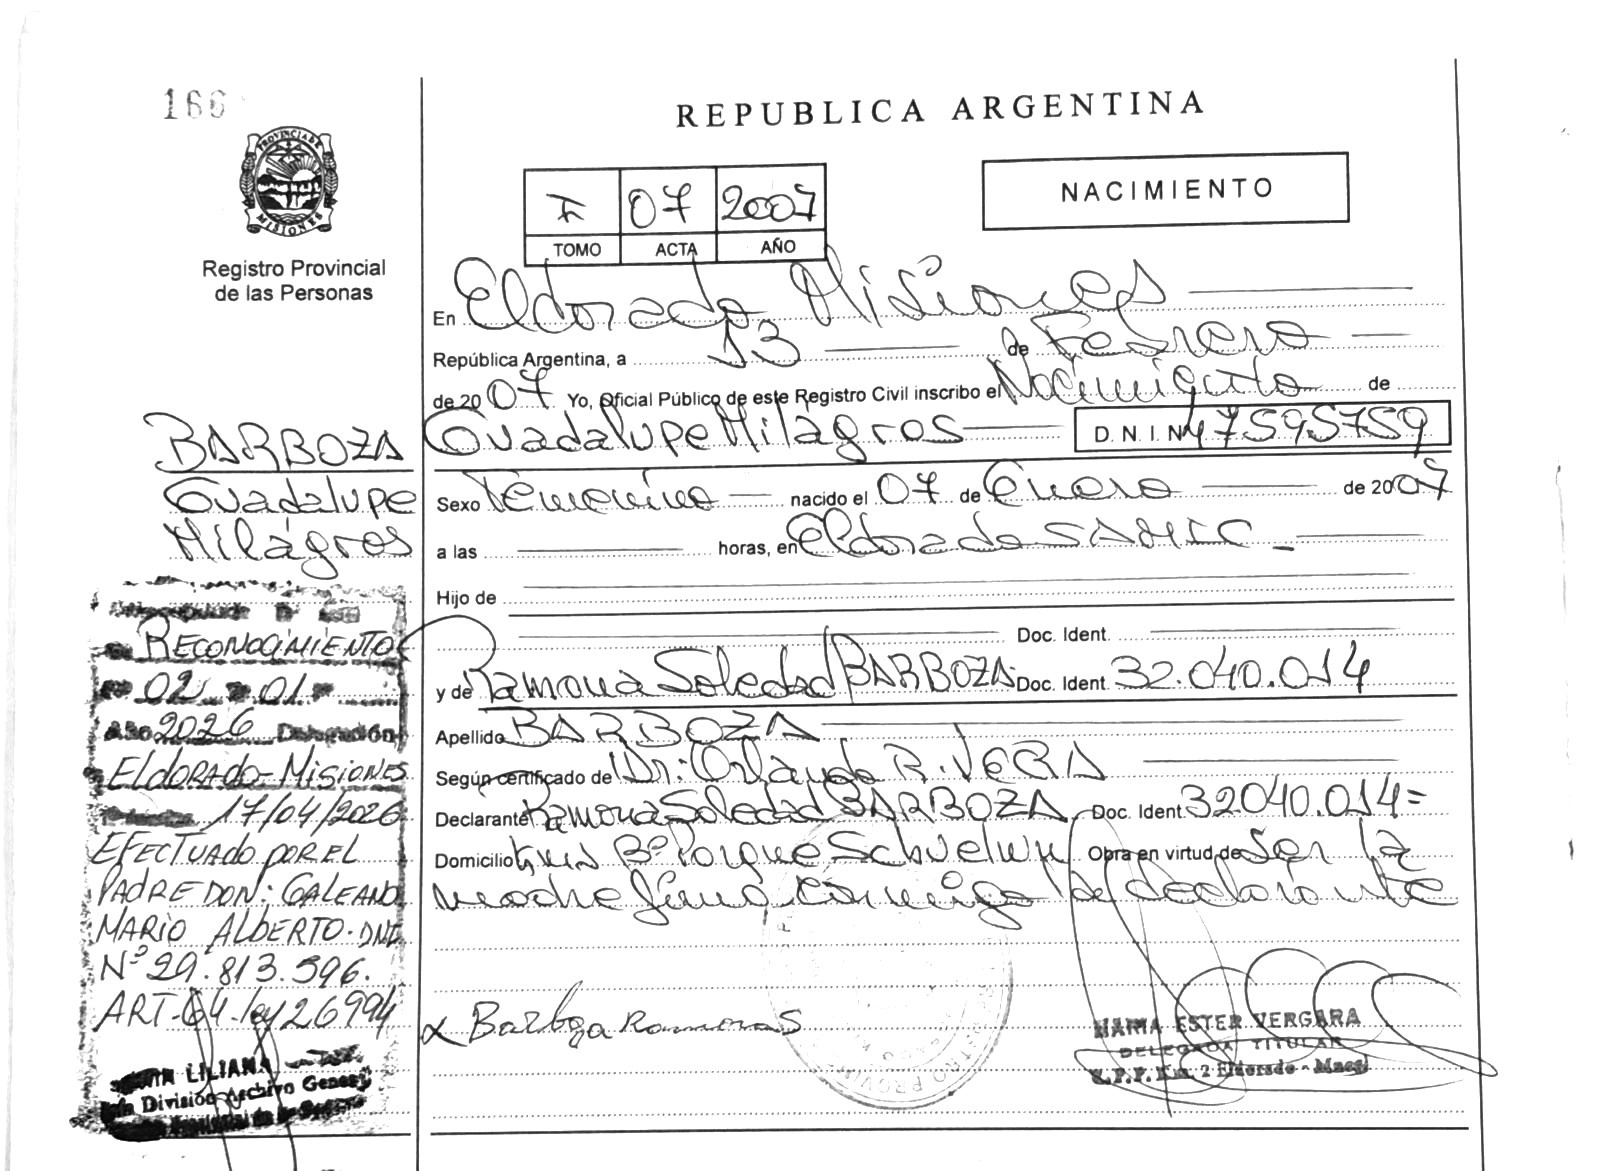 166
REPUBLICA ARGENTINA
PROVINCIA DE
MISIONES
Registro Provincial
de las Personas
07 2007
TOMO ACTA AÑO
NACIMIENTO
En Eldorado Misiones
República Argentina, a 13 de Febrero
de 2007 Yo, Oficial Público de este Registro Civil inscribo el Nacimiento de
Guadalupe Milagros D.N.I. Nº 47595759
Sexo Femenino nacido el 07 de Enero de 2007
a las horas, en Eldorado SAMIC
Hijo de
Doc. Ident.
y de Ramona Soledad BARBOZA Doc. Ident. 32.040.014
Apellido BARBOZA
Según certificado de Dr: Orlando R. VERA
Declarante Ramona Soledad BARBOZA Doc. Ident. 32040.014=
Domicilio Bº Parque Schwelm Obra en virtud de Ser la
madre firma conmigo la declarante
Barboza Ramona S
MARIA ESTER VERGARA
DELEGADA TITULAR
R.P.P. Km. 2 Eldorado - Mnes
BARBOZA
Guadalupe
Milagros
RECONOCIMIENTO
02 01
Año 2026 Delegación
ELDORADO-MISIONES
17/04/2026
EFECTUADO POR EL
PADRE DON: GALEANO
MARIO ALBERTO. DNI
Nº 29.813.596.
ART-64-ley 26994
LILIANA
División Archivo General